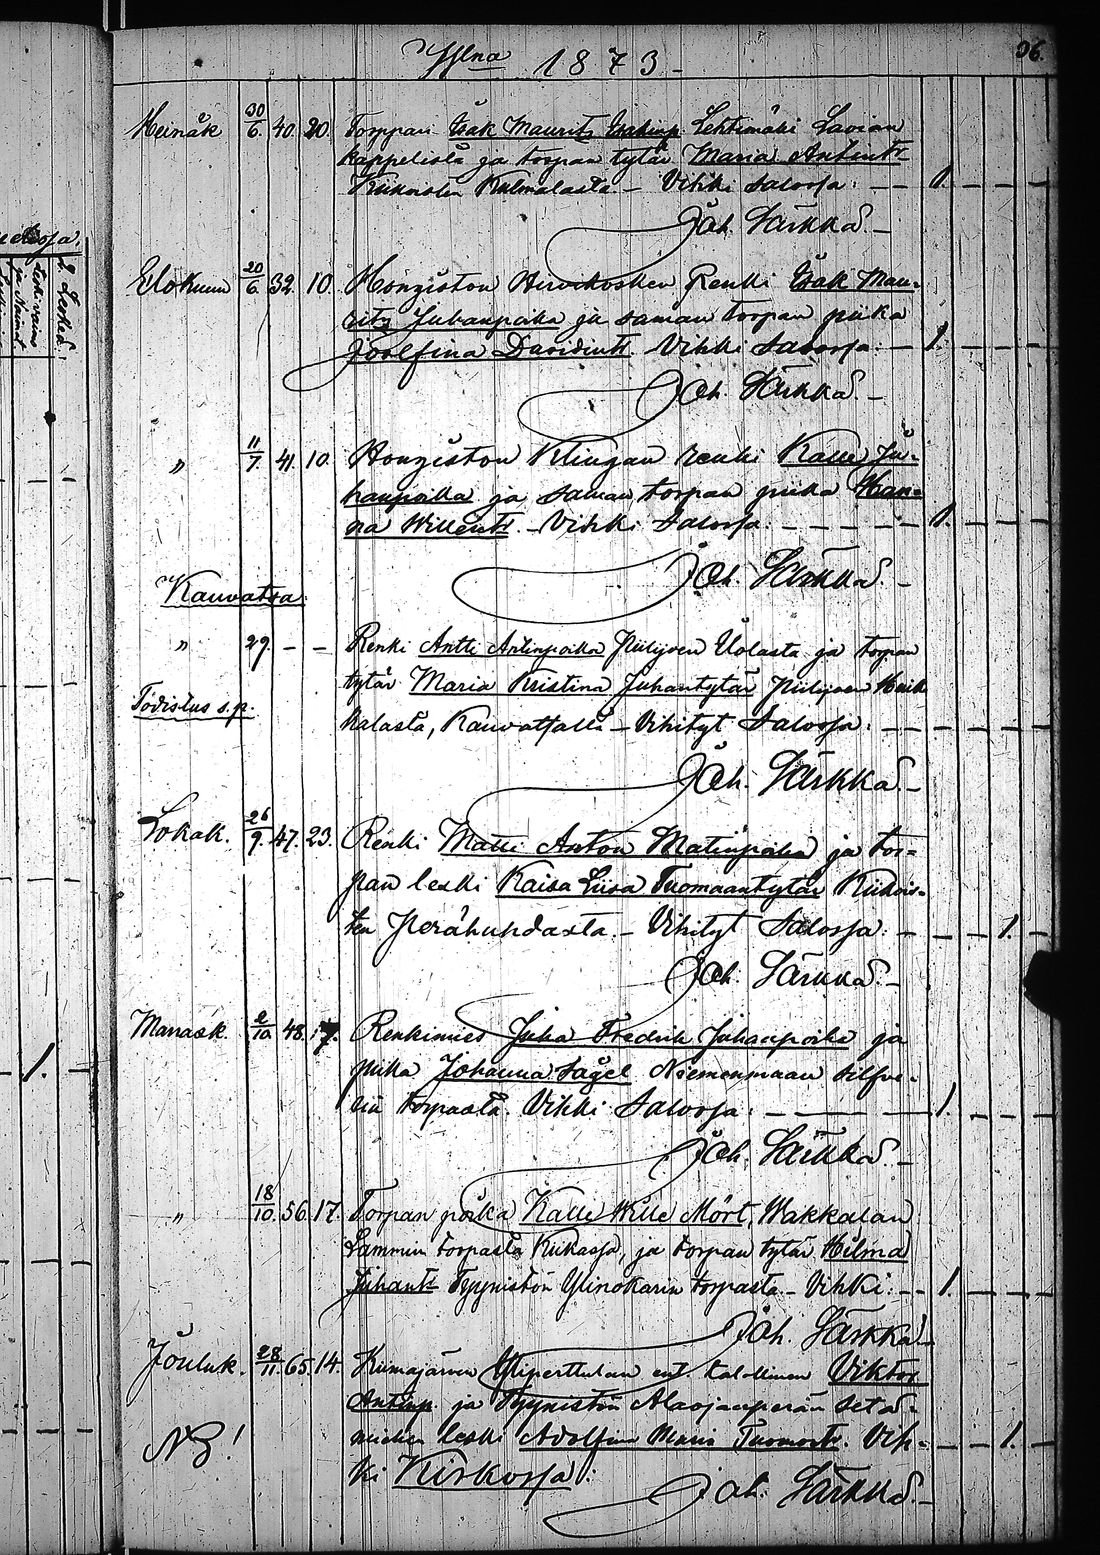 1873
96.
Heinäk 30/6. 40. 20. Torppari Isak Maurits Isakinp. Lehtimäki Lavian
kappelista ja torpan tytär Maria Antint.
Kiikoisten Kulmalasta – Vihki Salossa: – – 1. – – –
Joh. Särkkä. –
Elokuun 20/6. 32. 10. Hongiston Hirvikosken Renki Isak Mau-
ritz Juhanpoika ja saman torpan piika
Joolfina Davidint. Vihki Salossa: – 1. – – –
Joh. Särkkä. –
„ 11/7. 41. 10. Hongiston Klingan renki Kalle Ju-
hanpoika ja saman torpan piika Han-
na Willent. – Vihki Salossa. – – – – – 1. – – –
Joh. Särkkä. –
Kauvatsa.
„ 29. – – Renki Antti Antinpoika Piilijoen Uolasta ja torpan
tytär Maria Kristina Juhantytär Piilijoen Heik
Todistus s.p.
kalasta, Kauvatsalla – Vihityt Salossa: – – – – – –
Joh. Särkkä. –
Lokak. 26/9. 47. 23. Renki Matti Anton Matinpoika ja tor-
pan leski Kaisa Liisa Tuomaantytär Kiikois-
ten Perähuhdasta. – Vihityt Salossa: – – – 1. –
Joh. Särkkä. –
Marrask. 2/10. 48. 7. Renkimies Juha Fredrik Juhanpoika ja
piika Johanna Sagel Niemenmaan Silfve-
rin torpasta. Vihki Salossa: – – – 1. – – –
Joh. Särkkä. –
„ 18/10. 56. 17. Torpan poika Kalle Wille Mört, Wakkalan
Lammin torpasta Kiikassa, ja torpan tytär Hilma
Juhant. Tyyniston Ylinokarin torpasta – Vihki: – – 1. – – –
Joh. Särkkä –
Jouluk. 28/11. 65. 14. Kiimajärven Yliperttulan ent. talollinen Viktor
Antinp. ja Tyyniston Alaojanperän seta-
miehen leski Adolfina Maria Tuomont. Vih- – – 1. –
NB!
ki Kirkossa:
Joh. Särkkä. –